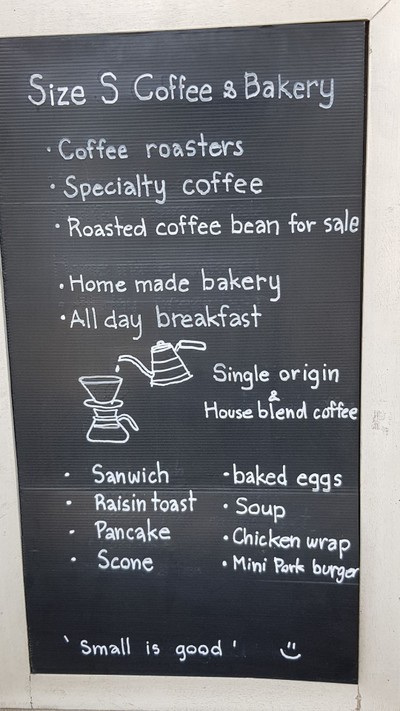 Size S Coffee & Bakery
· Coffee roasters
· Specialty coffee
· Roasted coffee bean for sale
· Home made bakery
· All day breakfast
Single origin
&
House blend coffee
· Sanwich
· Raisin toast
· Pancake
· Scone
· baked eggs
· Soup
· Chicken wrap
· Mini Pork burger
'Small is good'